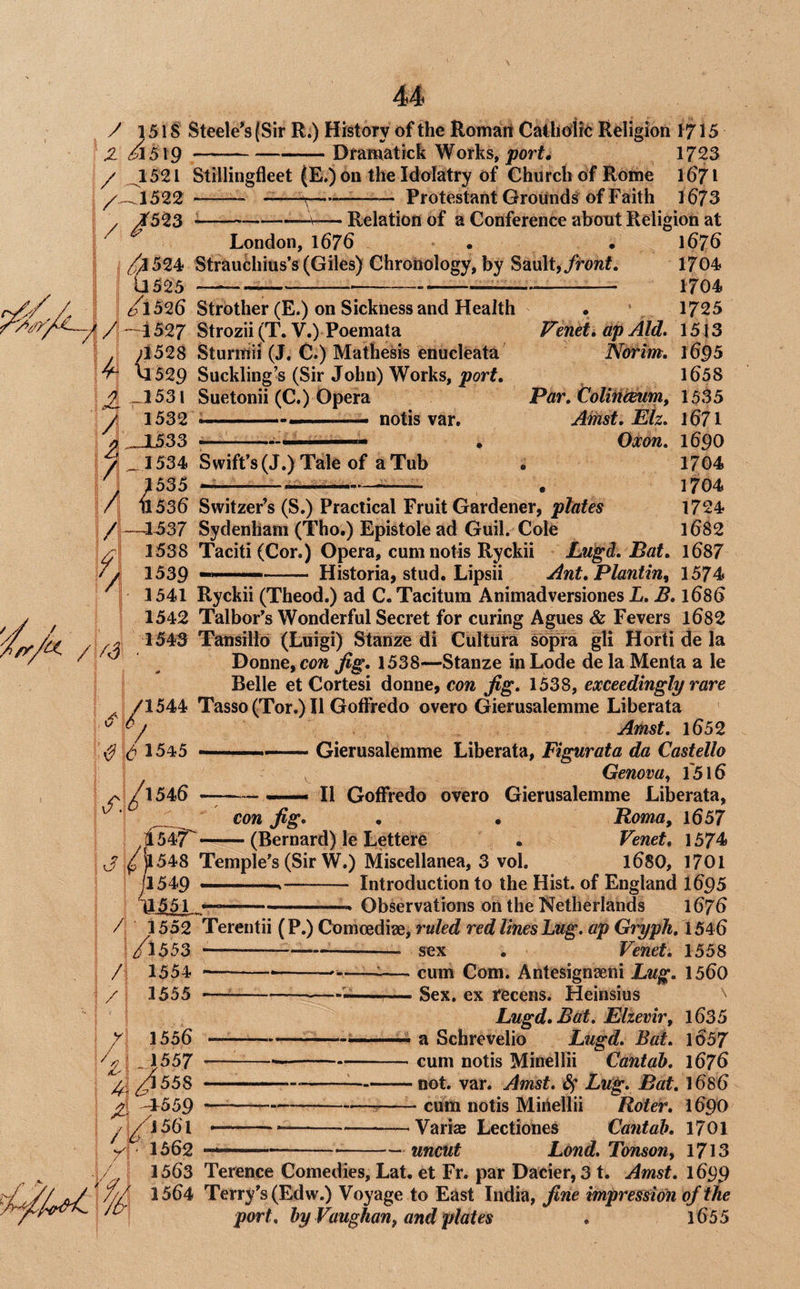 44
1518 Steele's (Sir R.) History of the Roman Catholic Religion 1715
2 1519 ———— Dramatick Works, port. 1723
1521 Stillingfleet (E.) on the Idolatry of Church of Rome 1671
1522 ———— Protestant Grounds of Faith 1673
1523 ———— Relation of a Conference about Religion at
London, 1676 . . 1676
1524 Strauchius's (Giles) Chronology, by Sault, front. 1704
1525 ———— 1704
1526 Strother (E.) on Sickness and Health . 1725
1527 Strozii (T. V.) Poemata Venet. ap Ald. 1513
1528 Sturmii (J. C.) Mathesis enucleata Norim. 1695
4 1529 Suckling's (Sir John) Works, port. 1658
2 1531 Suetonii (C.) Opera Par. Colinæum, 1535
1532 ———— notis var. Amst. Elz. 1671
2 1533 ———— . Oxon. 1690
1534 Swift's (J.) Tale of a Tub . 1704
1535 ———— . 1704
1536 Switzer's (S.) Practical Fruit Gardener, plates 1724
1537 Sydenham (Tho.) Epistole ad Guil. Cole 1682
1538 Taciti (Cor.) Opera, cum notis Ryckii Lugd. Bat. 1687
1539 ———— Historia, stud. Lipsii Ant. Plantin, 1574
1541 Ryckii (Theod.) ad C. Tacitum Animadversiones L. B. 1686
1542 Talbor's Wonderful Secret for curing Agues & Fevers 1682
13 1543 Tansillo (Luigi) Stanze di Cultura sopra gli Horti de la
Donne, con fig. 1538—Stanze in Lode de la Menta a le
Belle et Cortesi donne, con fig. 1538, exceedingly rare
1544 Tasso (Tor.) Il Goffredo overo Gierusalemme Liberata
Amst. 1652
1545 ———— Gierusalemme Liberata, Figurata da Castello
Genova, 1516
1546 ———— Il Goffredo overo Gierusalemme Liberata,
con fig. . . Roma, 1657
1547 —— (Bernard) le Lettere . Venet. 1574
1548 Temple's (Sir W.) Miscellanea, 3 vol. 1680, 1701
1549 ———— Introduction to the Hist. of England 1695
1551 ———— Observations on the Netherlands 1676
1552 Terentii (P.) Comœdiæ, ruled red lines Lug. ap Gryph. 1546
1553 ———— sex . Venet. 1558
1554 ———— cum Com. Antesignæni Lug. 1560
1555 ———— Sex. ex recens. Heinsius
Lugd. Bat. Elzevir, 1635
1556 ———— a Schrevelio Lugd. Bat. 1657
1557 ———— cum notis Minellii Cantab. 1676
1558 ———— not. var. Amst. & Lug. Bat. 1686
1559 ———— cum notis Minellii Roter. 1690
1561 ———— Variæ Lectiones Cantab. 1701
1562 ———— uncut Lond. Tonson, 1713
1563 Terence Comedies, Lat. et Fr. par Dacier, 3 t. Amst. 1699
1564 Terry's (Edw.) Voyage to East India, fine impression of the
port. by Vaughan, and plates . 1655